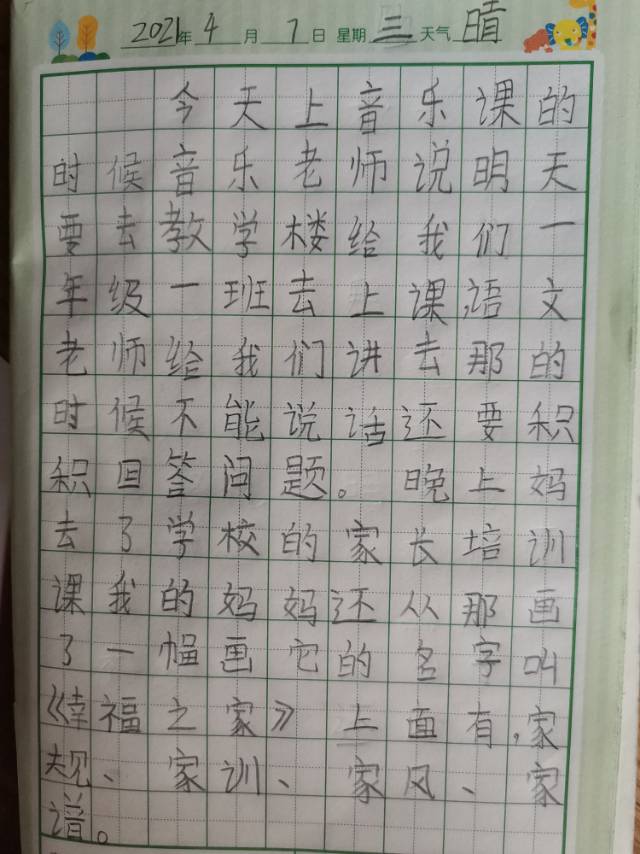 2021年4月7日 星期三 天气晴
今天上音乐课的
时候音乐老师说明天
要去教学楼给我们一
年级一班去上课,语文
老师给我们讲去那的
时候不能说话还要积
积回答问题。晚上妈
去了学校的家长培训
课我的妈妈还从那画
了一幅画它的名字叫
《幸福之家》上面有,家
规、家训、家风、家
谱。